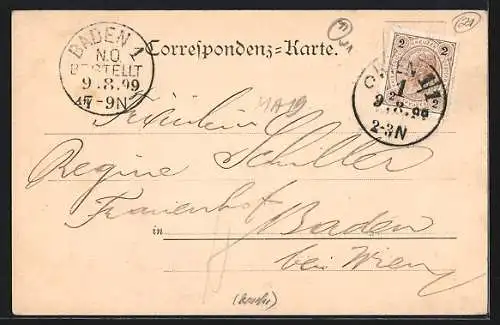 BADEN 1
N.O.
BESTELLT
9.8.99
7-9N
Correspondenz-Karte.
2 2
2 2
WIEN 1/1
1
9.8.99
2-3N
Fräulein
Regine Schiller
Frauenhof
in Baden
bei Wien